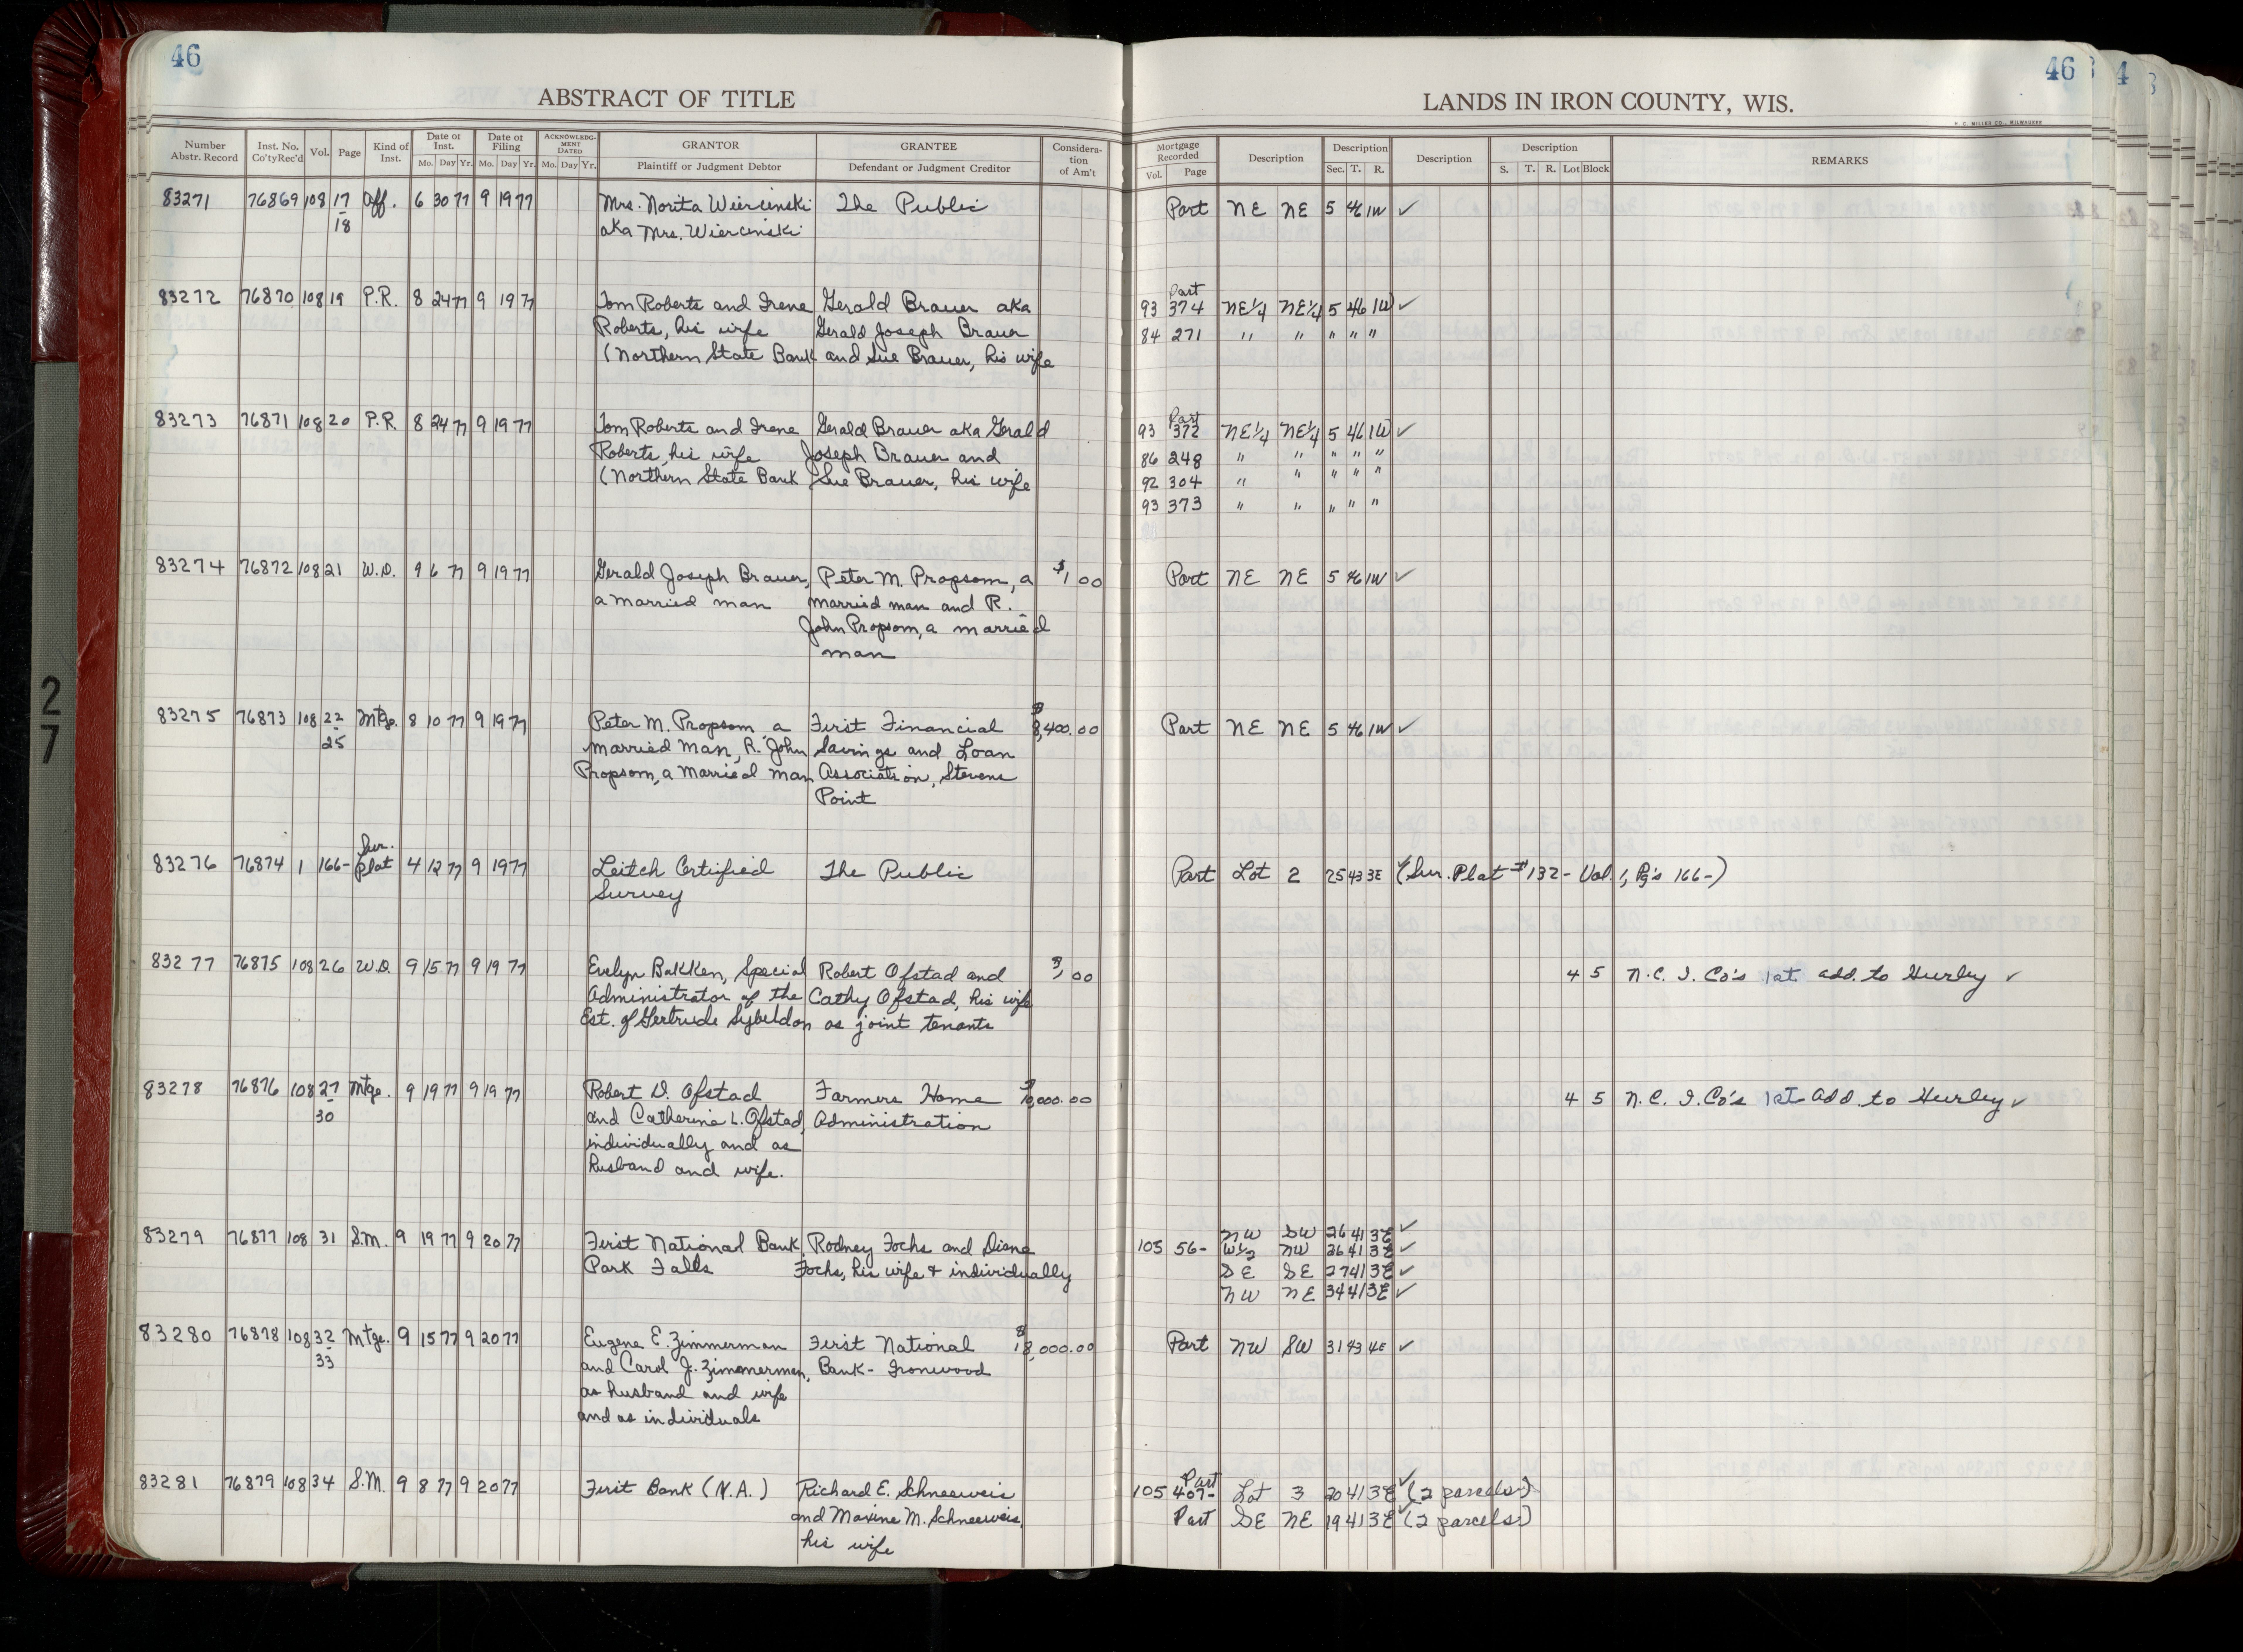 46
46
4
ABSTRACT OF TITLE
LANDS IN IRON COUNTY, WIS.
H. C. MILLER CO., MILWAUKEE
Number Abstr. Record Inst. No. Co'tyRec'd Vol. Page Kind of Inst. Date of Inst. Mo. Day Yr. Date of Filing Mo. Day Yr. ACKNOWLEDGMENT DATED Mo. Day Yr. GRANTOR Plaintiff or Judgment Debtor GRANTEE Defendant or Judgment Creditor Consideration of Am't
Mortgage Recorded Vol. Page Description Description Sec. T. R. Description Description S. T. R. Lot Block REMARKS
83271 76869 108 17 Aff. 6 30 77 9 19 77 Mrs. Norita Wiercinski The Public Part NE NE 5 46 1W ✓
18 aka Mrs. Wiercinski
Part
83272 76870 108 19 P.R. 8 24 77 9 19 77 Tom Roberts and Irene Gerald Brauer aka 93 374 NE1/4 NE1/4 5 46 1W ✓
Roberts, his wife Gerald Joseph Brauer 84 271 " " " " "
(Northern State Bank and Sue Brauer, his wife
Part
83273 76871 108 20 P.R. 8 24 77 9 19 77 Tom Roberts and Irene Gerald Brauer aka Gerald 93 372 NE1/4 NE1/4 5 46 1W ✓
Roberts, his wife Joseph Brauer and 86 248 " " " " "
(Northern State Bank Sue Brauer, his wife 92 304 " " " " "
93 373 " " " " "
83274 76872 108 21 W.D. 9 6 77 9 19 77 Gerald Joseph Brauer, Peter M. Propsom, a $1.00 Part NE NE 5 46 1W ✓
a married man married man and R.
John Propsom, a married
man
83275 76873 108 22 Mtge. 8 10 77 9 19 77 Peter M. Propsom, a First Financial $8,400.00 Part NE NE 5 46 1W ✓
25 married man, R. John Savings and Loan
Propsom, a married man Association, Stevens
Point
Sur.
83276 76874 1 166- Plat 4 12 77 9 19 77 Leitch Certified The Public Part Lot 2 25 43 3E ✓ (Sur. Plat #132 - Vol. 1, Pg's 166-)
Survey
83277 76875 108 26 W.D. 9 15 77 9 19 77 Evelyn Bakken, Special Robert Ofstad and $1.00 4 5 N.C.I. Co's 1st add. to Hurley ✓
Administrator of the Cathy Ofstad, his wife
Est. of Gertrude Sybeldon as joint tenants
83278 76876 108 27 Mtge. 9 19 77 9 19 77 Robert D. Ofstad Farmers Home 4 5 N.C.I. Co's 1st add. to Hurley ✓
30 and Catherine L. Ofstad, Administration
individually and as
husband and wife.
NW SW 26 41 3E ✓
83279 76877 108 31 S.M. 9 19 77 9 20 77 First National Bank, Rodney Fochs and Diane 105 56- W1/2 NW 26 41 3E ✓
Park Falls Fochs, his wife & individually SE SE 27 41 3E ✓
NW NE 34 41 3E ✓
83280 76878 108 32 Mtge. 9 15 77 9 20 77 Eugene E. Zimmerman First National $18,000.00 Part NW SW 31 43 4E ✓
33 and Carol J. Zimmerman, Bank - Ironwood
as husband and wife
and as individuals
Part
83281 76879 108 34 S.M. 9 8 77 9 20 77 First Bank (N.A.) Richard E. Schneeweis 105 407- Lot 3 20 41 3E ✓ (2 parcels)
and Maxine M. Schneeweis, Part SE NE 19 41 3E ✓ (2 parcels)
his wife
27